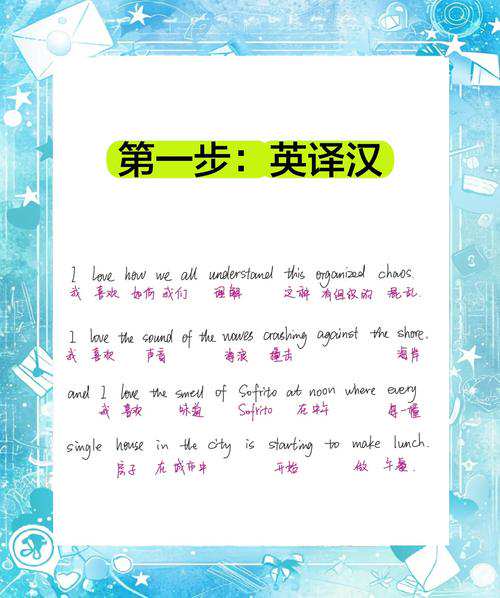 第一步：英译汉
I love how we all understand this organized chaos.
我 喜欢 如何 我们 理解 这种 有组织的 混乱.
I love the sound of the waves crashing against the shore.
我 喜欢 声音 海浪 撞击 海岸
and I love the smell of Sofrito at noon where every
我 喜欢 味道 Sofrito 在中午 每一幢
single house in the city is starting to make lunch.
房子 在城市中 开始 做 午餐.